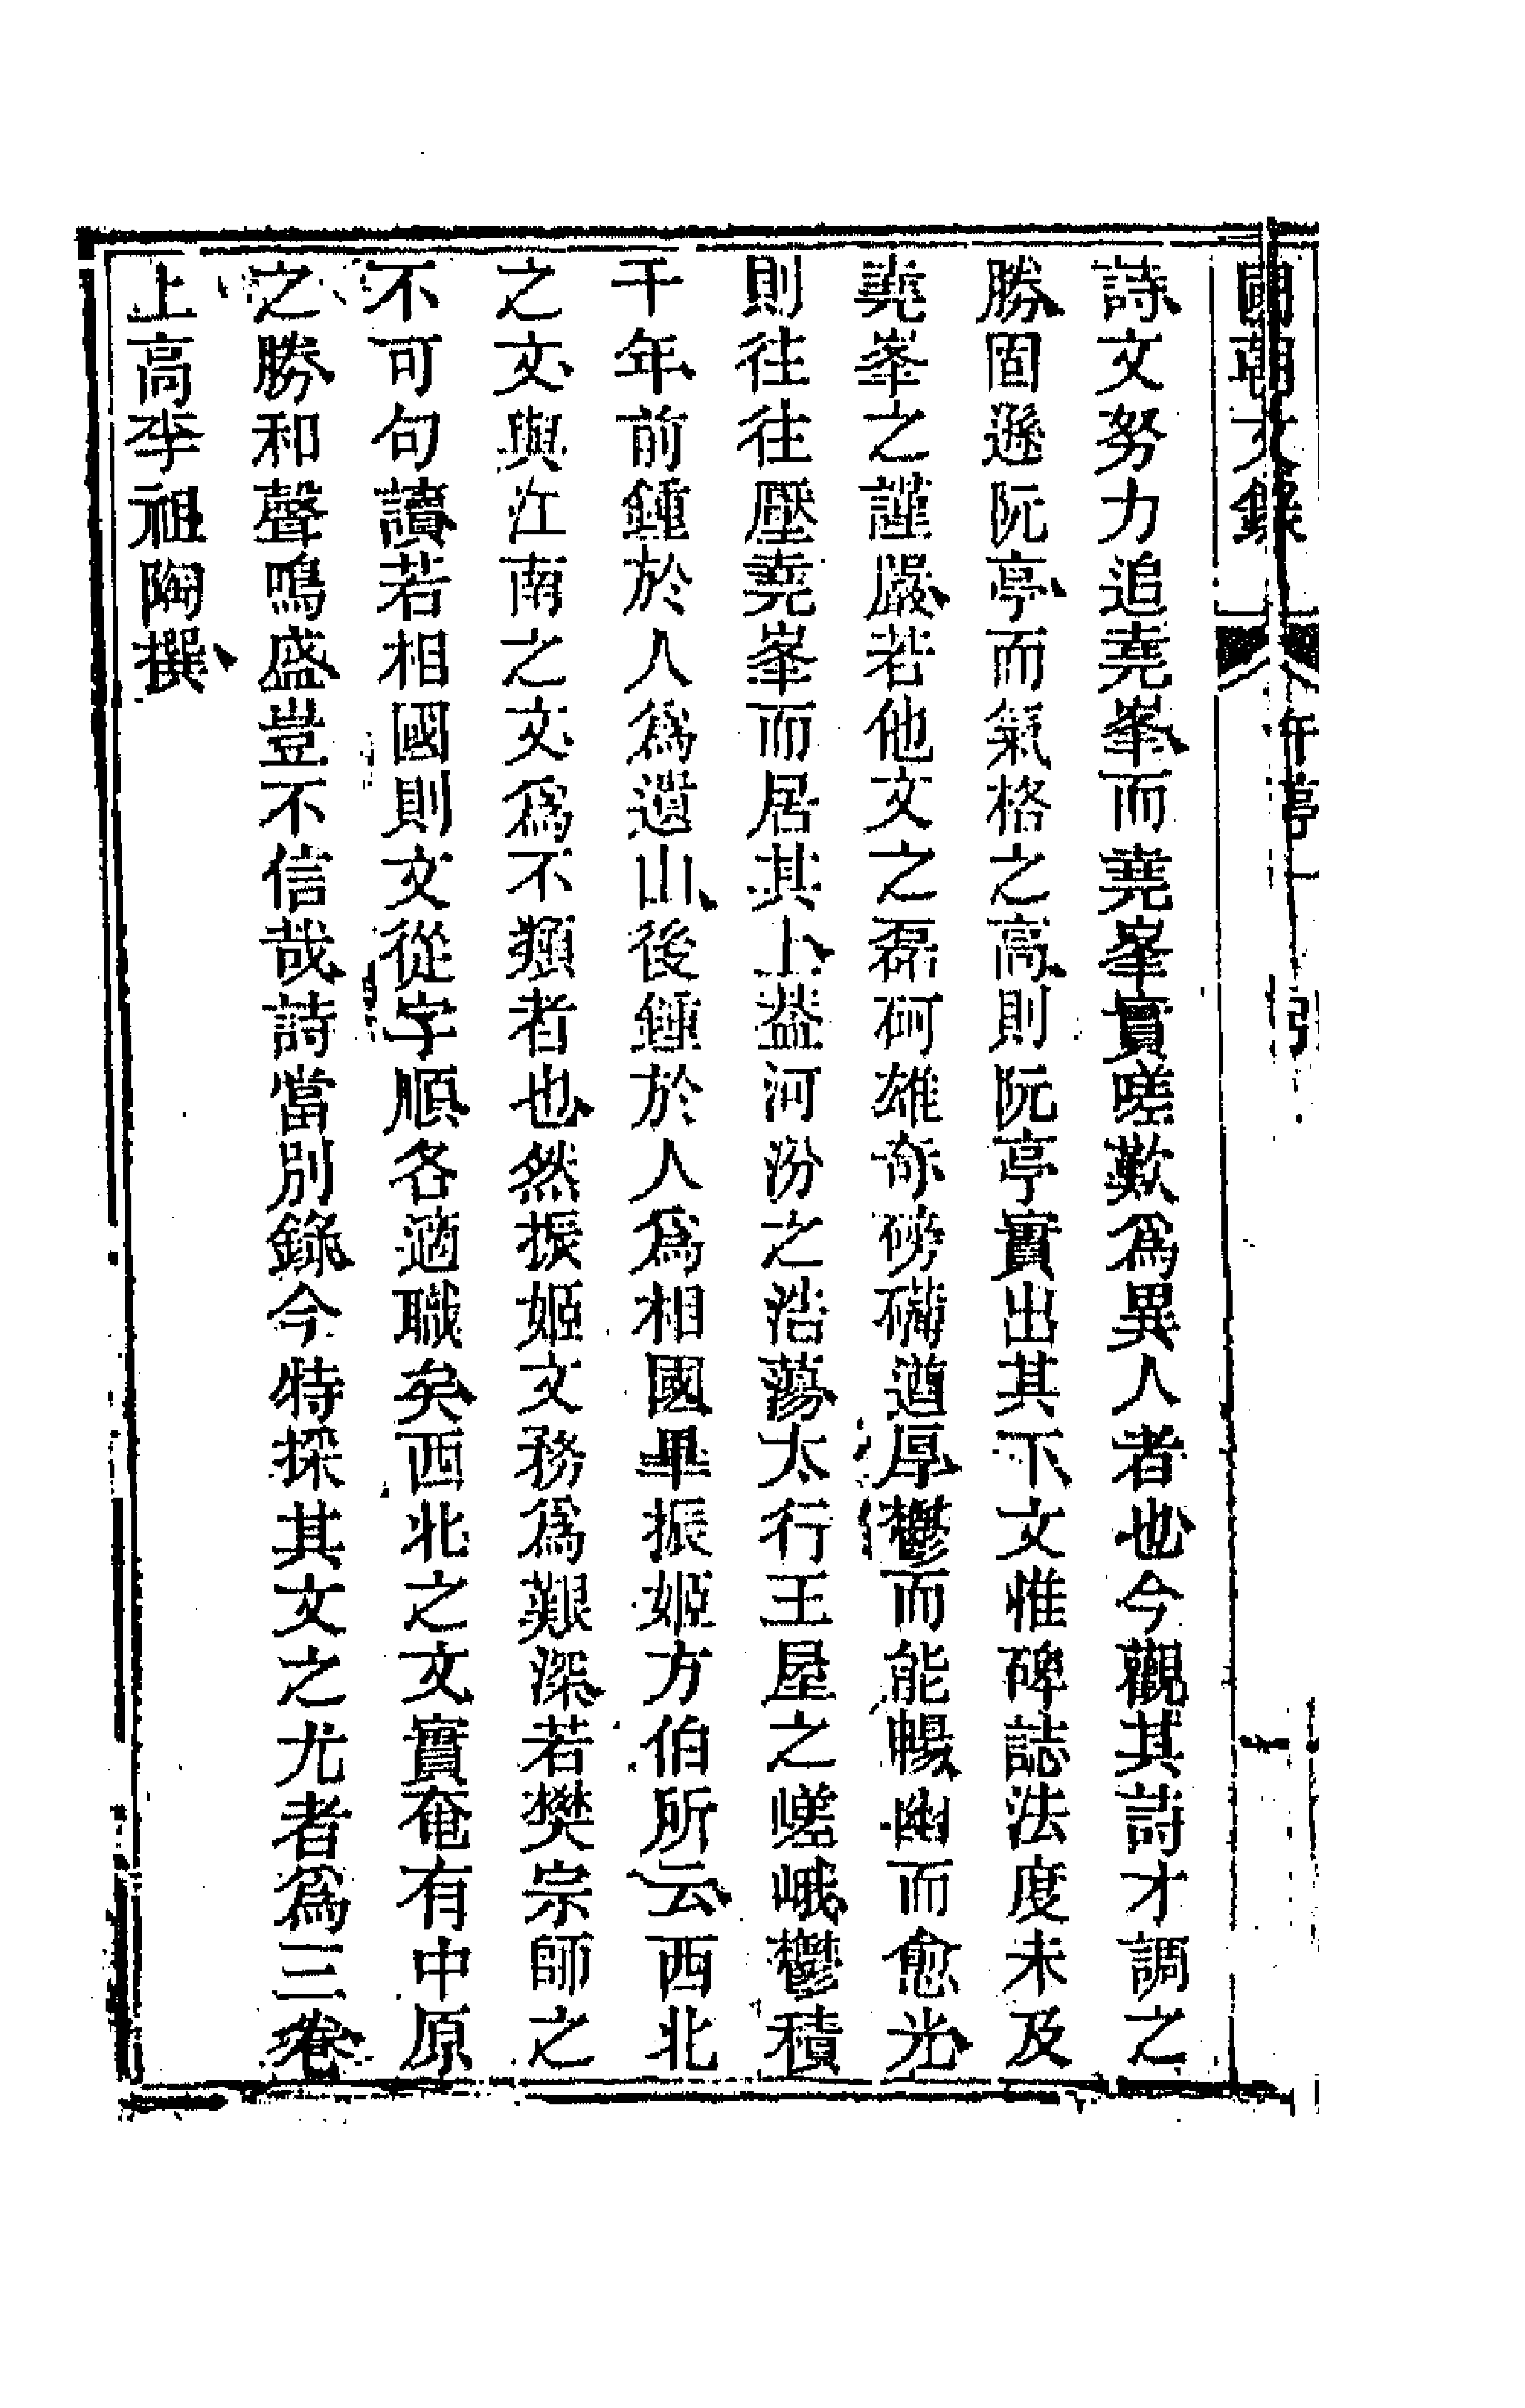 國朝文錄 午亭一 引 一
詩文努力追堯峯而堯峯實嗟歎爲異人者也今觀其詩才調之
勝固遜阮亭而氣格之高則阮亭實出其下文惟碑誌法度未及
堯峯之謹嚴若他文之磊砢雄奇磅礴遒厚鬱而能暢幽而愈光
則往往壓堯峯而居其上葢河汾之浩蕩太行王屋之嵯峨鬱積
千年前鍾於人爲遺山後鍾於人爲相國畢振姬方伯所云西北
之文與江南之文爲不類者也然振姬文務爲艱深若樊宗師之
不可句讀若相國則文從字順各適職矣西北之文實奄有中原
之勝和聲鳴盛豈不信哉詩當別錄今特採其文之尤者爲三卷
上高李祖陶撰